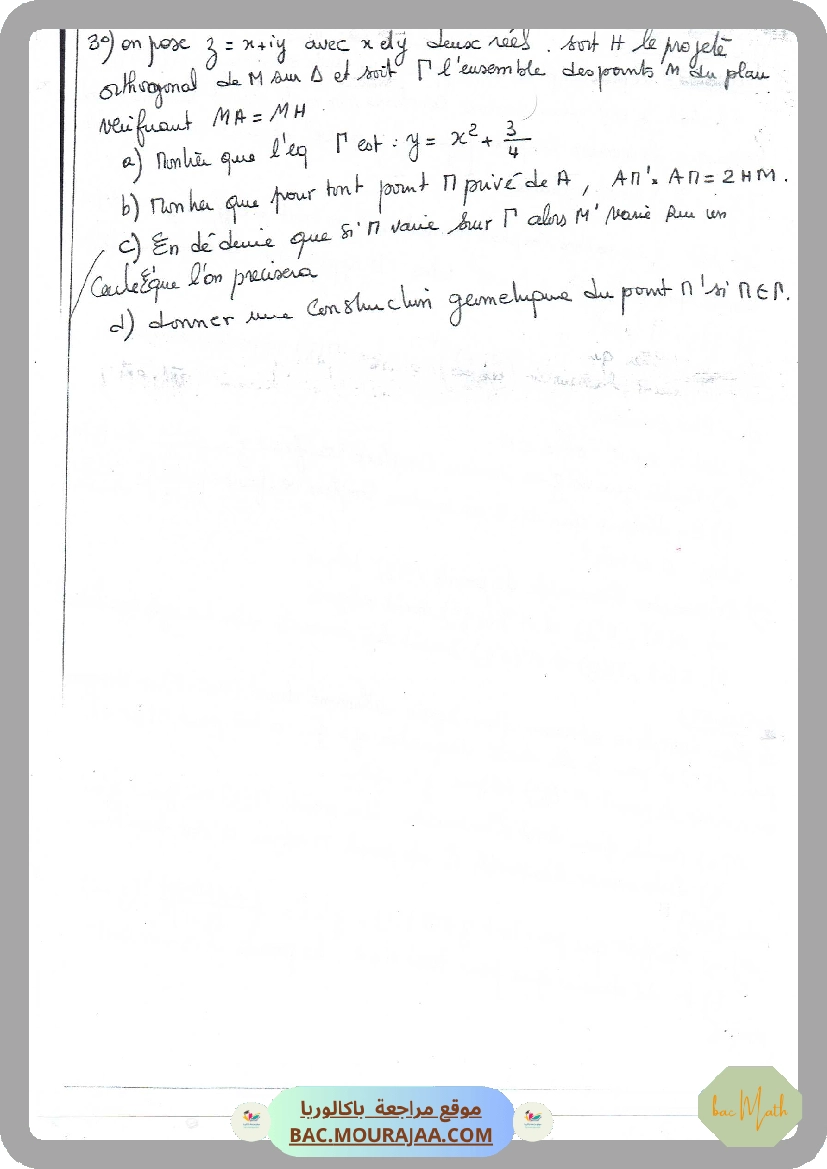 3°) on pose z = x+iy avec x et y deux réels . soit H le projeté
orthogonal de M sur Δ et soit Γ l'ensemble des points M du plan
vérifiant MA = MH
a) Montrer que l'eq Γ est : y = x² + 3/4
b) Montrer que pour tout point M privé de A , AM' × AM = 2 HM .
c) En déduire que si M varie sur Γ alors M' varie sur un
cercle ζ que l'on precisera
d) donner une construction geometrique du point M' si M ∈ Γ.
موقع مراجعة باكالوريا
BAC.MOURAJAA.COM
bac Math